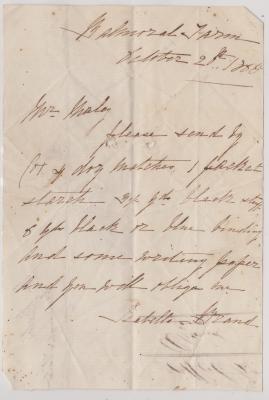 Balmoral Farm
October 2
Mr Maley
please send by
doz matches, 1 packet
starch yds black
8 yds black or blue binding
And some writing paper
And you will oblige me
Isabella